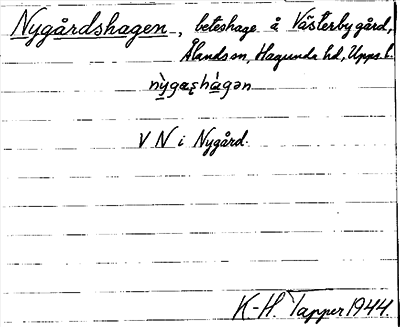 Nygårdshagen, beteshage å Västerby gård,
Ålands sn, Hagunda hd, Upps. l.
V N i Nygård.
K-H. Tapper 1944.